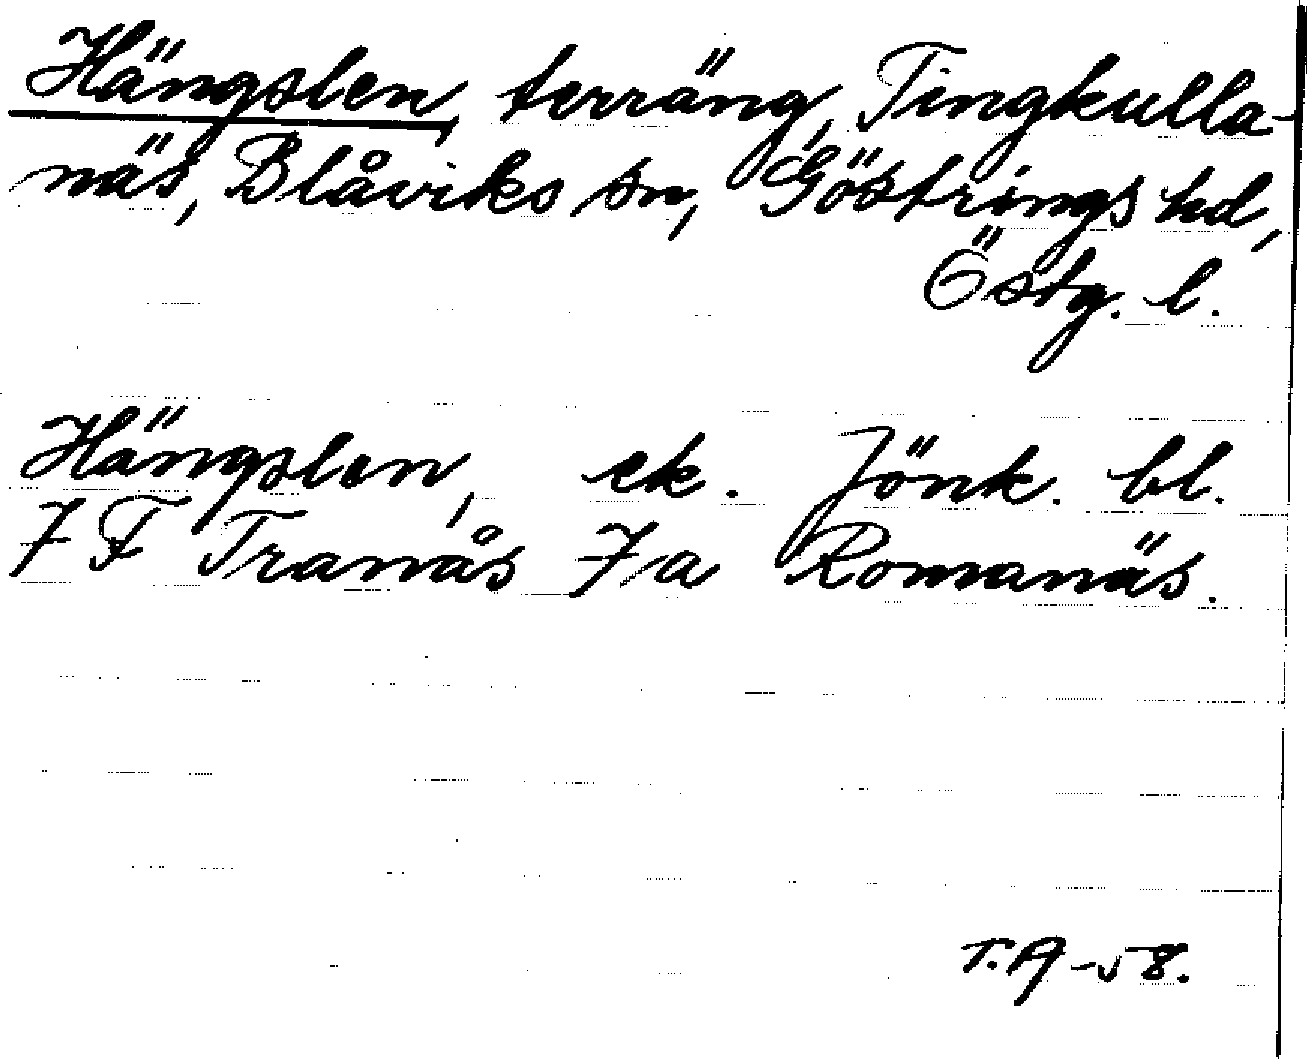 Hängslen, terräng, Tingkulla-
näs, Blåviks sn, Göstrings hd,
Östg. l.
Hängslen, ek. Jönk. bl.
7 F Tranås 7 a Romanäs.
T.A-58.